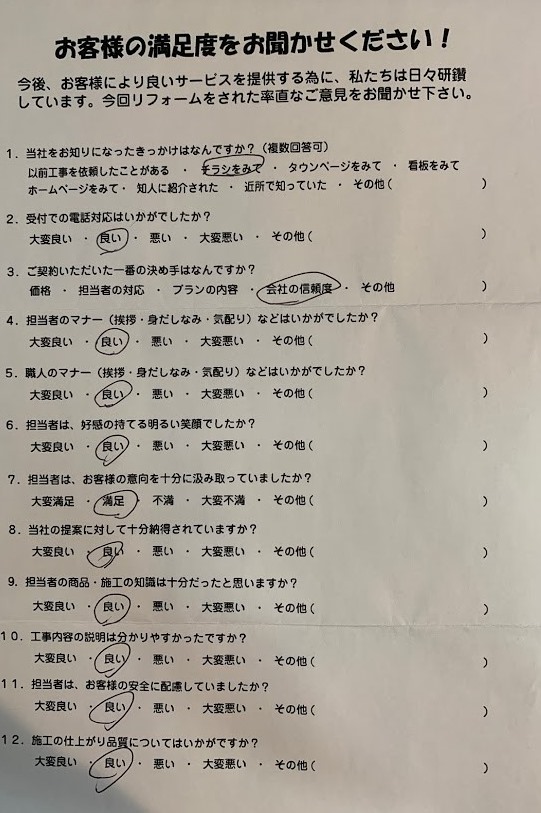 お客様の満足度をお聞かせください！
今後、お客様により良いサービスを提供する為に、私たちは日々研鑽
しています。今回リフォームをされた率直なご意見をお聞かせ下さい。
1．当社をお知りになったきっかけはなんですか？（複数回答可）
以前工事を依頼したことがある ・ チラシをみて ・ タウンページをみて ・ 看板をみて
ホームページをみて・ 知人に紹介された ・ 近所で知っていた ・ その他（ ）
2．受付での電話対応はいかがでしたか？
大変良い ・ 良い ・ 悪い ・ 大変悪い ・ その他（ ）
3．ご契約いただいた一番の決め手はなんですか？
価格 ・ 担当者の対応 ・ プランの内容 ・ 会社の信頼度 ・ その他 ）
4．担当者のマナー（挨拶・身だしなみ・気配り）などはいかがでしたか？
大変良い ・ 良い ・ 悪い ・ 大変悪い ・ その他（ ）
5．職人のマナー（挨拶・身だしなみ・気配り）などはいかがでしたか？
大変良い ・ 良い ・ 悪い ・ 大変悪い ・ その他（ ）
6．担当者は、好感の持てる明るい笑顔でしたか？
大変良い ・ 良い ・ 悪い ・ 大変悪い ・ その他（ ）
7．担当者は、お客様の意向を十分に汲み取っていましたか？
大変満足 ・ 満足 ・ 不満 ・ 大変不満 ・ その他（ ）
8．当社の提案に対して十分納得されていますか？
大変良い ・ 良い ・ 悪い ・ 大変悪い ・ その他（ ）
9．担当者の商品・施工の知識は十分だったと思いますか？
大変良い ・ 良い ・ 悪い ・ 大変悪い ・ その他（ ）
10．工事内容の説明は分かりやすかったですか？
大変良い ・ 良い ・ 悪い ・ 大変悪い ・ その他（ ）
11．担当者は、お客様の安全に配慮していましたか？
大変良い ・ 良い ・ 悪い ・ 大変悪い ・ その他（ ）
12．施工の仕上がり品質についてはいかがですか？
大変良い ・ 良い ・ 悪い ・ 大変悪い ・ その他（ ）